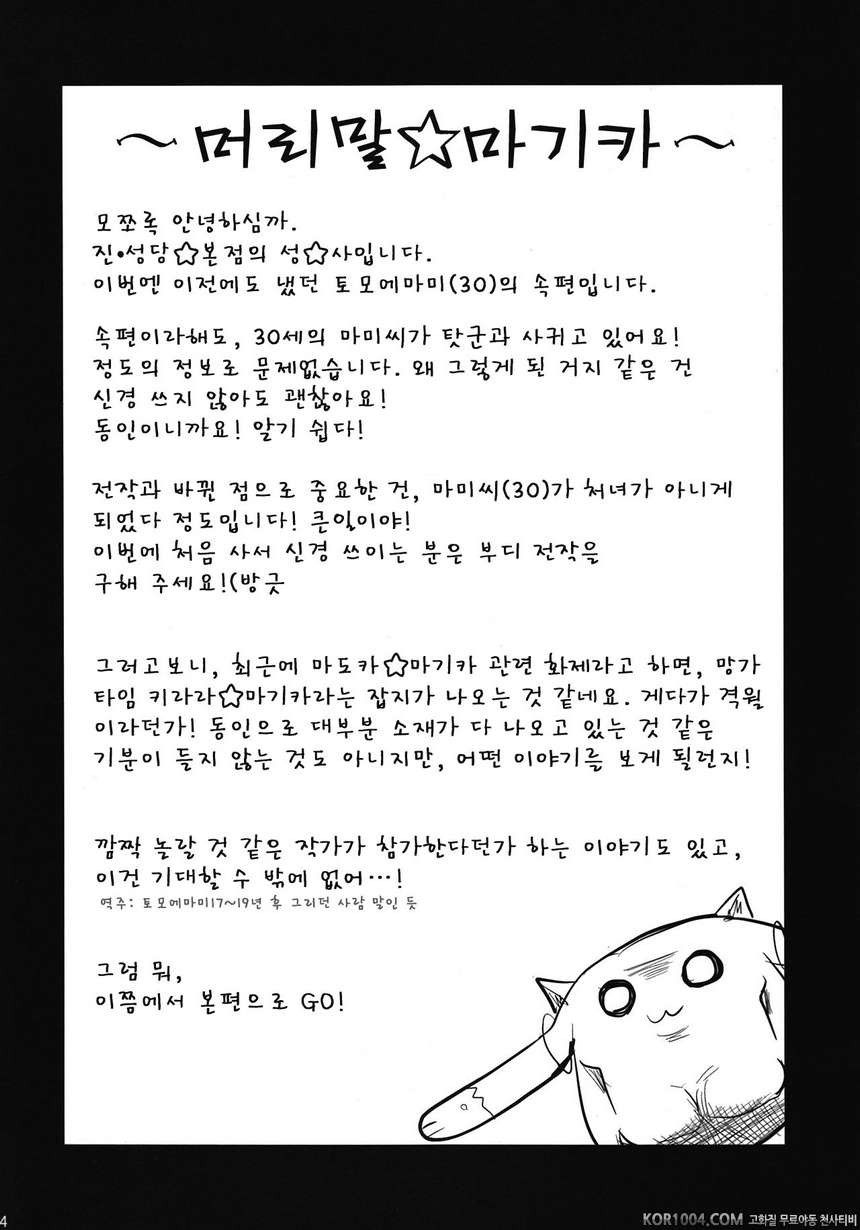 ~머리말☆마기카~
모쪼록 안녕하심까.
진•성당☆본점의 성☆사입니다.
이번엔 이전에도 냈던 토모에마미(30)의 속편입니다.
속편이라해도, 30세의 마미씨가 탓군과 사귀고 있어요!
정도의 정보로 문제없습니다. 왜 그렇게 된 거지 같은 건
신경 쓰지 않아도 괜찮아요!
동인이니까요! 알기 쉽다!
전작과 바뀐 점으로 중요한 건, 마미씨(30)가 처녀가 아니게
되었다 정도입니다! 큰일이야!
이번에 처음 사서 신경 쓰이는 분은 부디 전작을
구해 주세요!(방긋
그러고보니, 최근에 마도카☆마기카 관련 화제라고 하면, 망가
타임 키라라☆마기카라는 잡지가 나오는 것 같네요. 게다가 격월
이라던가! 동인으로 대부분 소재가 다 나오고 있는 것 같은
기분이 들지 않는 것도 아니지만, 어떤 이야기를 보게 될런지!
깜짝 놀랄 것 같은 작가가 참가한다던가 하는 이야기도 있고,
이건 기대할 수 밖에 없어…!
역주: 토모에마미17~19년 후 그리던 사람 말인 듯
그럼 뭐,
이쯤에서 본편으로 GO!
4
KOR1004.COM 고화질 무료야동 천사티비